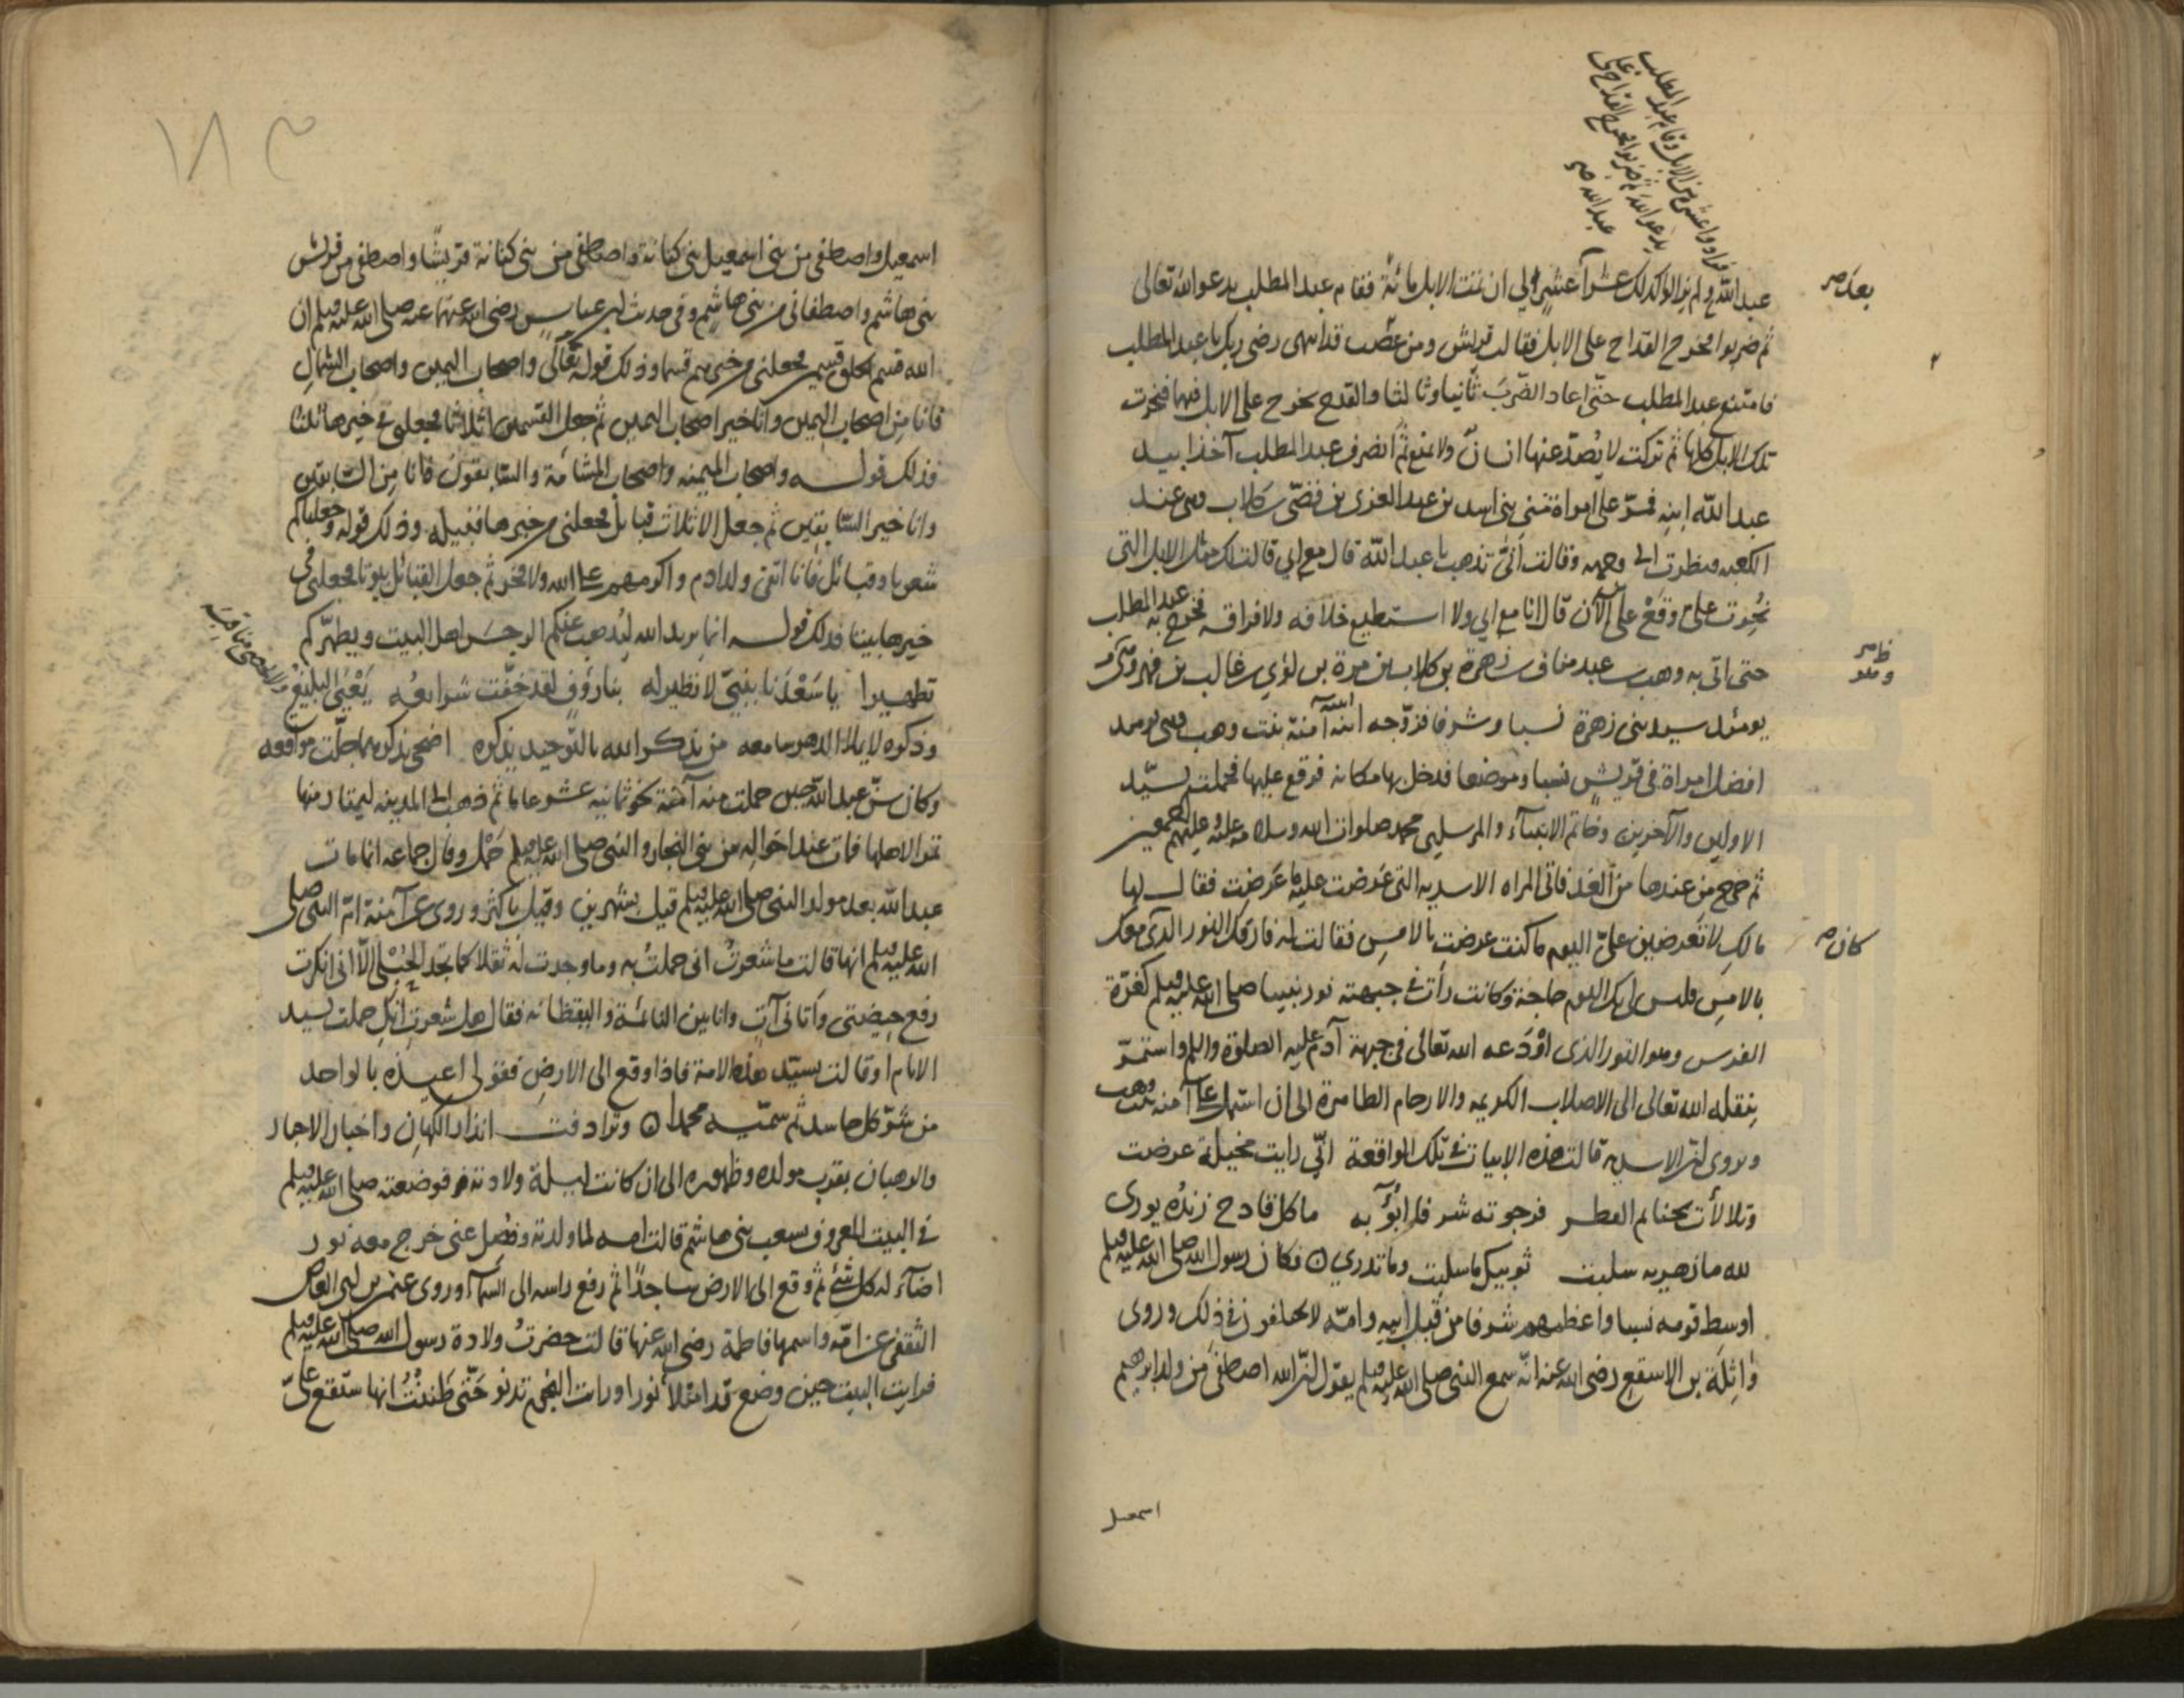 فزادوا عشرا من الابل وقام عبد المطلب
يدعو الله ثم ضربوا فخرج القداح على
عبد الله صح
عبد الله ولم يزالوا كذلك عشرا عشرا الى ان بلغت الابل مائة فقام عبد المطلب يدعو الله تعالى
بعد صح
ثم ضربوا فخرج القداح على الابل فقالت قريش ومن عصب قد انتهى رضى ربك يا عبد المطلب
فامتنع عبد المطلب حتى اعاد الضرب ثانيا وثالثا والقدح يخرج على الابل فيها فنحرت
تلك الابل كلها ثم تركت لا يصد عنها انسان ولا منع ثم انصرف عبد المطلب آخذا بيد
عبد الله ابنه فمر على امراة من بنى اسد بن عبد العزى بن قصى بن كلاب وهى عند
الكعبة فنظرت الى وجهه وقالت انى تذهب يا عبد الله قال مع ابى قالت لك مثل الابل التى
نحرت على وقع على الآن قال انا مع ابى ولا استطيع خلافه ولا فراقه فخرج به عبد المطلب
حتى اتى به وهب بن عبد مناف بن زهرة بن كلاب بن مرة بن لؤي بن غالب بن فهر وهو
ظاهر
وهو
يومئذ سيد بنى زهرة نسبا وشرفا فزوجه ابنته آمنة بنت وهب وهى يومئذ
افضل امراة فى قريش نسبا وموضعا فدخل بها مكانه فوقع عليها فحملت بسيد
الاولين والآخرين وخاتم الانبياء والمرسلين محمد صلوات الله وسلامه عليه وعليهم اجمعين
ثم خرج من عندها من الغد فاتى المراه الاسدية التى عرضت عليه ما عرضت فقال لها
مالك لا تعرضين على اليوم ما كنت عرضت بالامس فقالت له فارقك النور الذى معك
كان صح
بالامس فليس لى بك اليوم حاجة وكانت رأت فى جبهته نور نبينا صلى الله عليه وسلم كغرة
الفرس وهو النور الذى اودعه الله تعالى فى جبهة آدم عليه الصلوة والسلام واستمر
ينقله الله تعالى الى الاصلاب الكريمة والارحام الطاهرة الى ان استهل على آمنة بنت وهب
ويروى ان الاسدية قالت هذه الابيات فى تلك الواقعة انى رايت مخيلة عرضت
وتلالأت بحناتم القطر فرجوته شرفا ابوٓء به ما كل قادح زنده يورى
لله ما زهرية سلبت ثوبيك ما سلبت وما تدري ۝ فكان رسول الله صلى الله عليه وسلم
اوسط قومه نسبا واعظمهم شرفا من قبل ابيه وامه لا يخالفون فى ذلك وروى
واثلة بن الاسقع رضى الله عنه انه سمع النبى صلى الله عليه وسلم يقول ان الله اصطفى من ولد ابرهيم
اسمعيل
١٨٣
اسمعيل واصطفى من بنى اسمعيل بنى كنانة واصطفى من بنى كنانة قريشا واصطفى من قريش
بنى هاشم واصطفانى من بنى هاشم وفى حديث ابن عباس رضى الله عنهما عنه صلى الله عليه وسلم ان
الله قسم الخلق قسمين فجعلنى من خيرهم قسما وذلك قوله تعالى واصحاب اليمين واصحاب الشمال
فانا من اصحاب اليمين وانا خير اصحاب اليمين ثم جعل القسمين اثلاثا فجعلنى فى خيرها ثلثا
فذلك قوله واصحاب الميمنة واصحاب المشأمة والسابقون فانا من السابقين
وانا خير السابقين ثم جعل الاثلاث قبايل فجعلنى من خيرها قبيلة وذلك قوله وجعلناكم
شعوبا وقبائل فانا اتقى ولد ادم واكرمهم على الله ولا فخر ثم جعل القبائل بيوتا فجعلنى فى
خيرها بيتا فذلك قوله انما يريد الله ليذهب عنكم الرجس اهل البيت ويطهركم
تطهيرا يا سعدنا بنبي لا نظير له بنا رؤف لقد خفت شرائعه يعيى البليغ
والفصحى مناقبه
وذكره لا يملا الدهر سامعه من يذكر الله بالتوحيد يذكره اضحى بذكرهما جلت مواقعه
وكان سن عبد الله حين حملت منه آمنة نحو ثمانية عشر عاما ثم ذهب الى المدينه ليمتار منها
تمرا لاهلها فمات عند اخواله من بنى النجار والنبى صلى الله عليه وسلم حمل وقال جماعة انما مات
عبد الله بعد مولد النبى صلى الله عليه وسلم قيل بشهرين وقيل باكثر وروى عن آمنة ام النبى صلى
الله عليه وسلم انها قالت ما شعرت انى حملت به وما وجدت له ثقلا كما تجد الحبلى الا انى انكرت
رفع حيضتى واتانى آت وانا بين النائمة واليقظانه فقال هل شعرت انك حملت بسيد
الانام او قالت بسيد هذه الامة فاذا وقع الى الارض فقولى اعيذه بالواحد
من شر كل حاسد ثم سميه محمدا ۝ وترادفت انذار الكهان واخبار الاحبار
والرهبان بقرب مولده وظهوره الى ان كانت ليلة ولادته فوضعته صلى الله عليه وسلم
فى البيت المعروف بشعب بنى هاشم قالت امه لما ولدته وفصل عنى خرج معه نور
اضآء له كل شئ ثم وقع الى الارض ساجدا ثم رفع راسه الى السمآء وروى عثمن بن ابى العاص
الثقفى عن امه واسمها فاطمة رضى الله عنها قالت حضرت ولادة رسول الله صلى الله عليه وسلم
فرايت البيت حين وضع قد امتلأ نورا ورات النجم تدنو حتى ظننت انها ستقع على